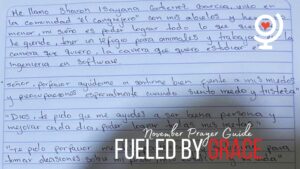 Me llamo Sharon Isayana Gutierrez Garcia, vivo en
la comunidad "El cangrejo" con mis abuelos y
menor, mi sueño es poder lograr todo lo que
he querido, tener un refugio para animales y trabajar
carrera que que la carrera que quiero estudiar
ingenieria en Software.
"señor, perfavor ayudame a sentirme bien frente a mis miedos
y preocupaciones especialmente cuando siento miedo y tristeza"
"Dios, te pido que me ayudes a ser buena persona y
mejorar cada dia, poder lograr
"Te pido perfavor
tomar decisiones sobre mi
November Prayer Guide
FUELED BY GRACE